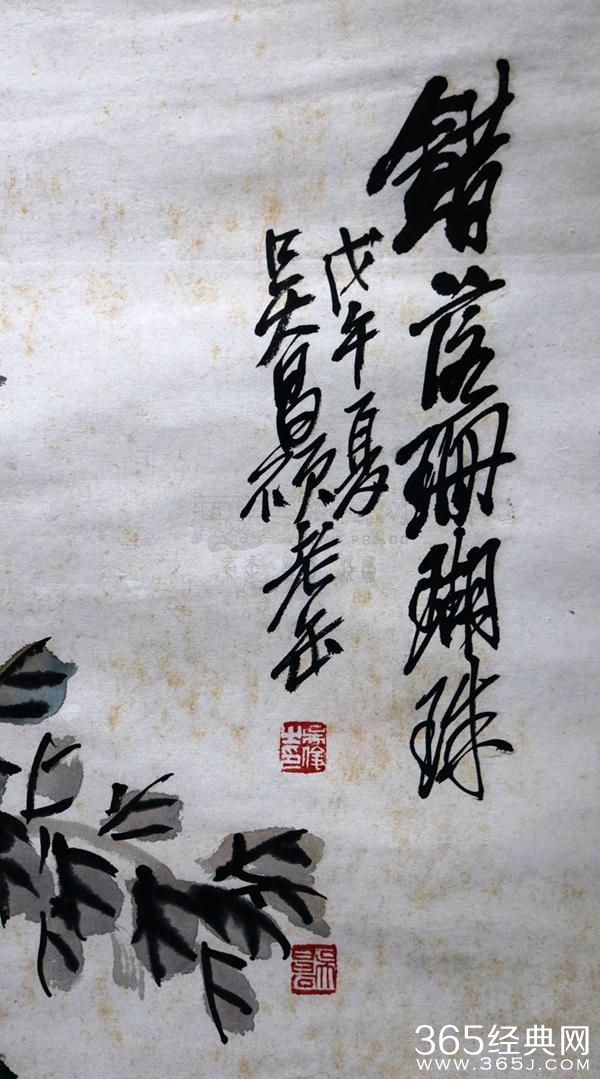 錯落珊瑚珠
戊午夏
吴昌碩老缶
365经典网
WWW.365J.COM